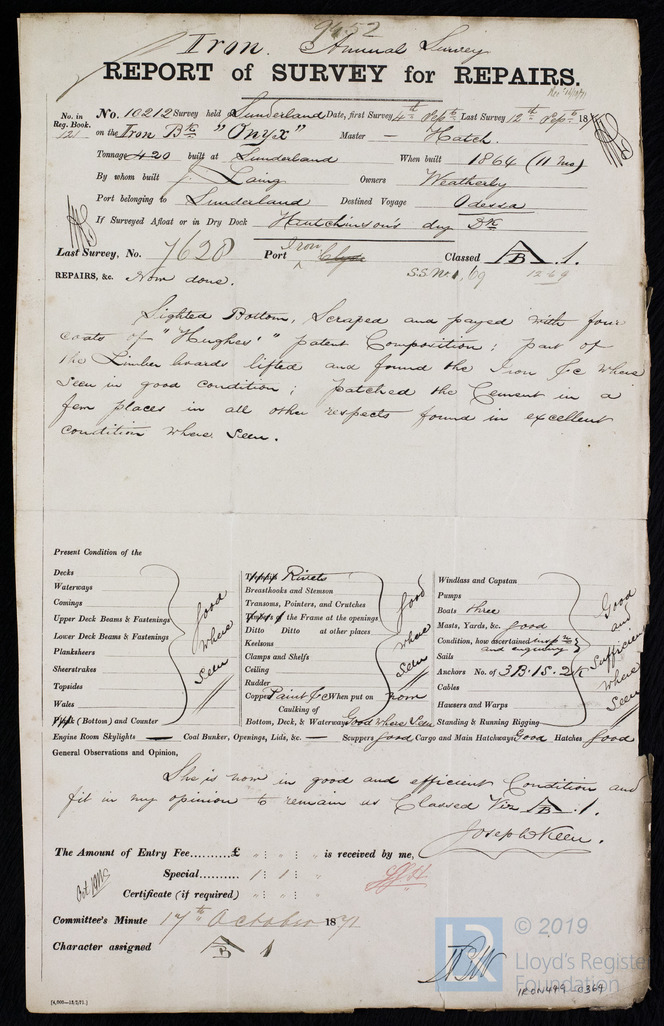 9452
Iron. Annual Survey
REPORT of SURVEY for REPAIRS.
No. in Reg. Book. 121
No. 10212 Survey held Sunderland Date, first Survey 4th Sepr Last Survey 12th Sepr 1871
on the Iron Bk "Onyx" Master — Hatch.
Tonnage 420 built at Sunderland When built 1864 (11 mo)
By whom built J. Laing Owners Weatherly
Port belonging to Sunderland Destined Voyage Odessa
If Surveyed Afloat or in Dry Dock Hutchinson's dry Dk
Last Survey, No. 7628 Port Iron Clyde Classed A/B .1.
S.S. No 1, 69 12 69
REPAIRS, &c. Now done.
Sighted Bottom, Scraped and payed with four
coats of "Hughes'" patent Composition; part of
the Limber boards lifted and found the Iron &c where
seen in good condition; patched the Cement in a
few places in all other respects found in excellent
condition where seen.
Present Condition of the
Decks
Waterways
Comings
Upper Deck Beams & Fastenings
Lower Deck Beams & Fastenings
Planksheers
Sheerstrakes
Topsides
Wales
Plank (Bottom) and Counter
good where seen
Treenails Rivets
Breasthooks and Stemson
Transoms, Pointers, and Crutches
Timbers of the Frame at the openings
Ditto Ditto at other places
Keelsons
Clamps and Shelfs
Ceiling
Rudder
Copper Paint &c When put on now
Caulking of
Bottom, Deck, & Waterways Good where Seen
good where seen
Windlass and Capstan
Pumps
Boats three
Masts, Yards, &c. good
Condition, how ascertained and enquiry
Sails
Anchors No. of 3 B. 1 S. 2 K
Cables
Hawsers and Warps
Standing & Running Rigging
Good and Sufficient where Seen
Engine Room Skylights — Coal Bunker, Openings, Lids, &c. — Scuppers good Cargo and Main Hatchways Good Hatches good
General Observations and Opinion,
She is now in good and efficient Condition and
fit in my opinion to remain as Classed Viz A/B .1.
Joseph Keen.
The Amount of Entry Fee..........£ " : " : " is received by me,
Special.......... 1 : 1 : "
Certificate (if required) " : " : "
Committee's Minute 17th October 1871
Character assigned A/B 1
[4,000—13/2/71.]
© 2019
Lloyd's Register
Foundation
IRON499-0369